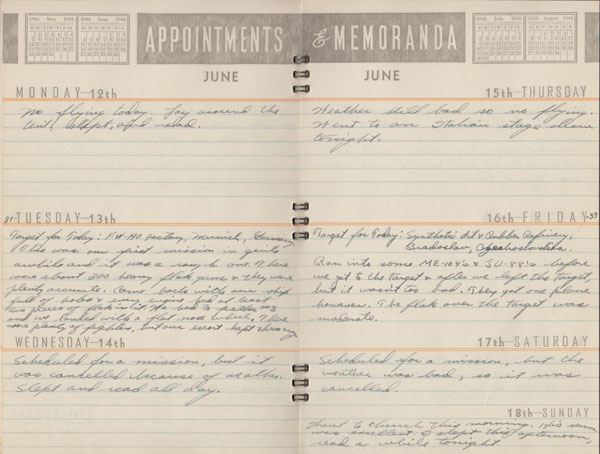 1944 May 1944
1944 June 1944
1944 July 1944
1944 August 1944
APPOINTMENTS & MEMORANDA
JUNE
JUNE
MONDAY 12th
No flying today. Lay around the
tent, slept, and read.
31 TUESDAY 13th
Target for Today: F.W. 190 Factory, Munich, Germany
This was our first mission in quite
awhile and it was a rough one. There
was about 200 heavy flak guns & they were
plenty accurate. Came back with our ship
full of holes & every engine had at least
two pieces of flak in it. We had to feather #3
and we landed with a flat nose wheel. There
were plenty of fighters, but our escort kept them away
WEDNESDAY 14th
Scheduled for a mission, but it
was cancelled because of weather.
Slept and read all day.
15th THURSDAY
Weather still bad so no flying.
Went to an Italian stage show
tonight.
16th FRIDAY 33
Target for Today: Synthetic Oil & Rubber Refinery,
Bradoslav, Czechoslovakia.
Ran into some ME-109's & JU-88's before
we got to the target & after we left the target,
but it wasn't too bad. They got one plane
however. The flak over the target was
moderate.
17th SATURDAY
Scheduled for a mission, but the
weather was bad, so it was
cancelled.
18th SUNDAY
Went to church this morning. His sermon
was excellent. I slept this afternoon,
read a while tonight.